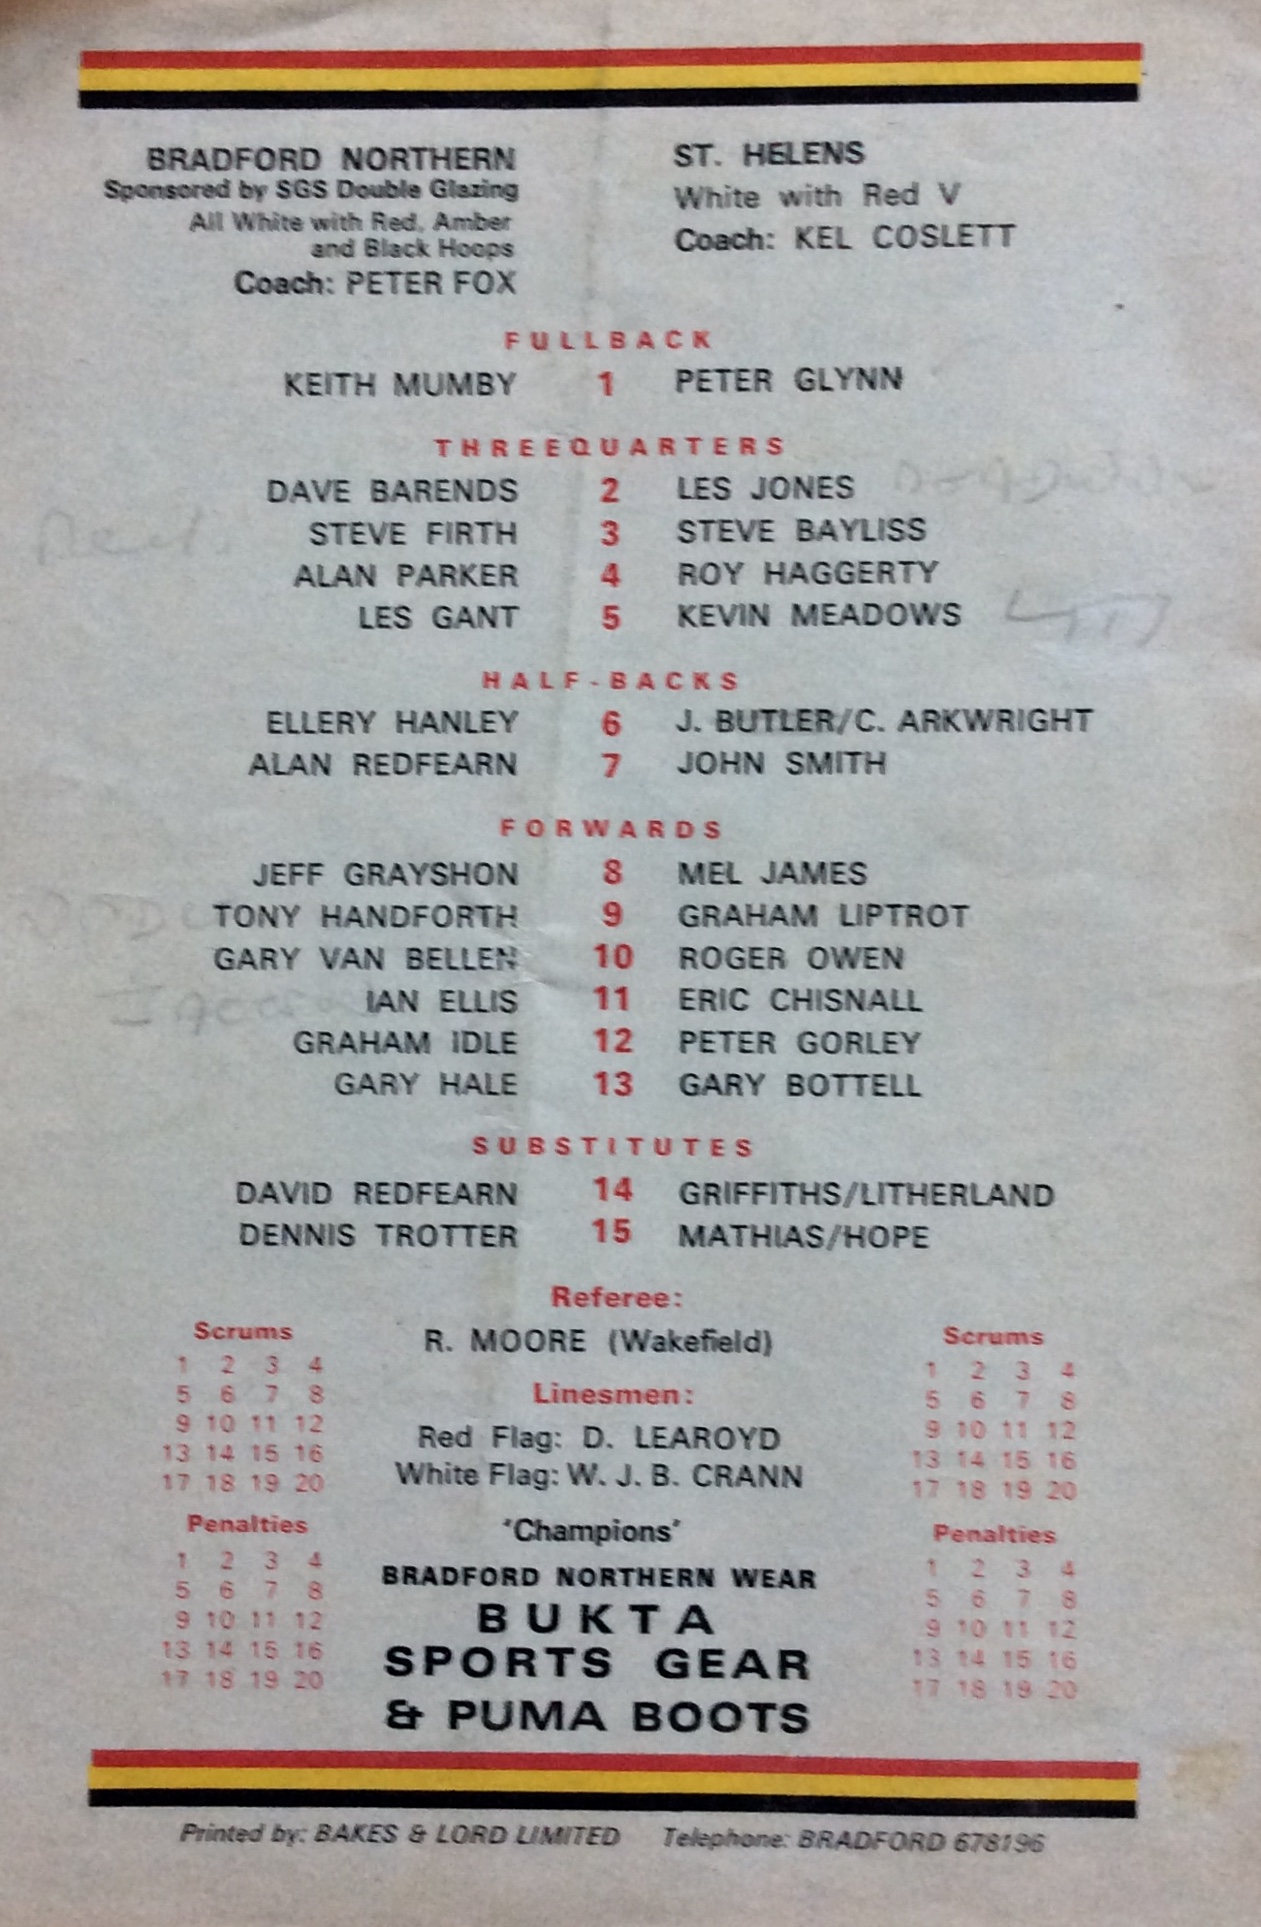 BRADFORD NORTHERN
Sponsored by SGS Double Glazing
All White with Red, Amber
and Black Hoops
Coach: PETER FOX
ST. HELENS
White with Red V
Coach: KEL COSLETT
FULLBACK
KEITH MUMBY 1 PETER GLYNN
THREEQUARTERS
DAVE BARENDS 2 LES JONES
STEVE FIRTH 3 STEVE BAYLISS
ALAN PARKER 4 ROY HAGGERTY
LES GANT 5 KEVIN MEADOWS
HALF-BACKS
ELLERY HANLEY 6 J. BUTLER/C. ARKWRIGHT
ALAN REDFEARN 7 JOHN SMITH
FORWARDS
JEFF GRAYSHON 8 MEL JAMES
TONY HANDFORTH 9 GRAHAM LIPTROT
GARY VAN BELLEN 10 ROGER OWEN
IAN ELLIS 11 ERIC CHISNALL
GRAHAM IDLE 12 PETER GORLEY
GARY HALE 13 GARY BOTTELL
SUBSTITUTES
DAVID REDFEARN 14 GRIFFITHS/LITHERLAND
DENNIS TROTTER 15 MATHIAS/HOPE
Referee:
R. MOORE (Wakefield)
Linesmen:
Red Flag: D. LEAROYD
White Flag: W. J. B. CRANN
Scrums
1 2 3 4
5 6 7 8
9 10 11 12
13 14 15 16
17 18 19 20
Penalties
1 2 3 4
5 6 7 8
9 10 11 12
13 14 15 16
17 18 19 20
'Champions'
BRADFORD NORTHERN WEAR
BUKTA
SPORTS GEAR
& PUMA BOOTS
Scrums
1 2 3 4
5 6 7 8
9 10 11 12
13 14 15 16
17 18 19 20
Penalties
1 2 3 4
5 6 7 8
9 10 11 12
13 14 15 16
17 18 19 20
Printed by: BAKES & LORD LIMITED Telephone: BRADFORD 678196